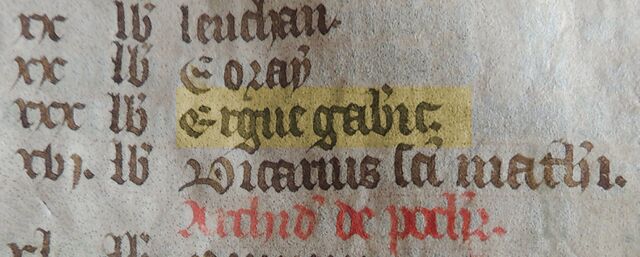 xx lb leuchan.
xx lb Ecoray
xxx lb Ergue gabic.
xvj. lb Vicarius sci mathi.
Archid de poch.
xl lb